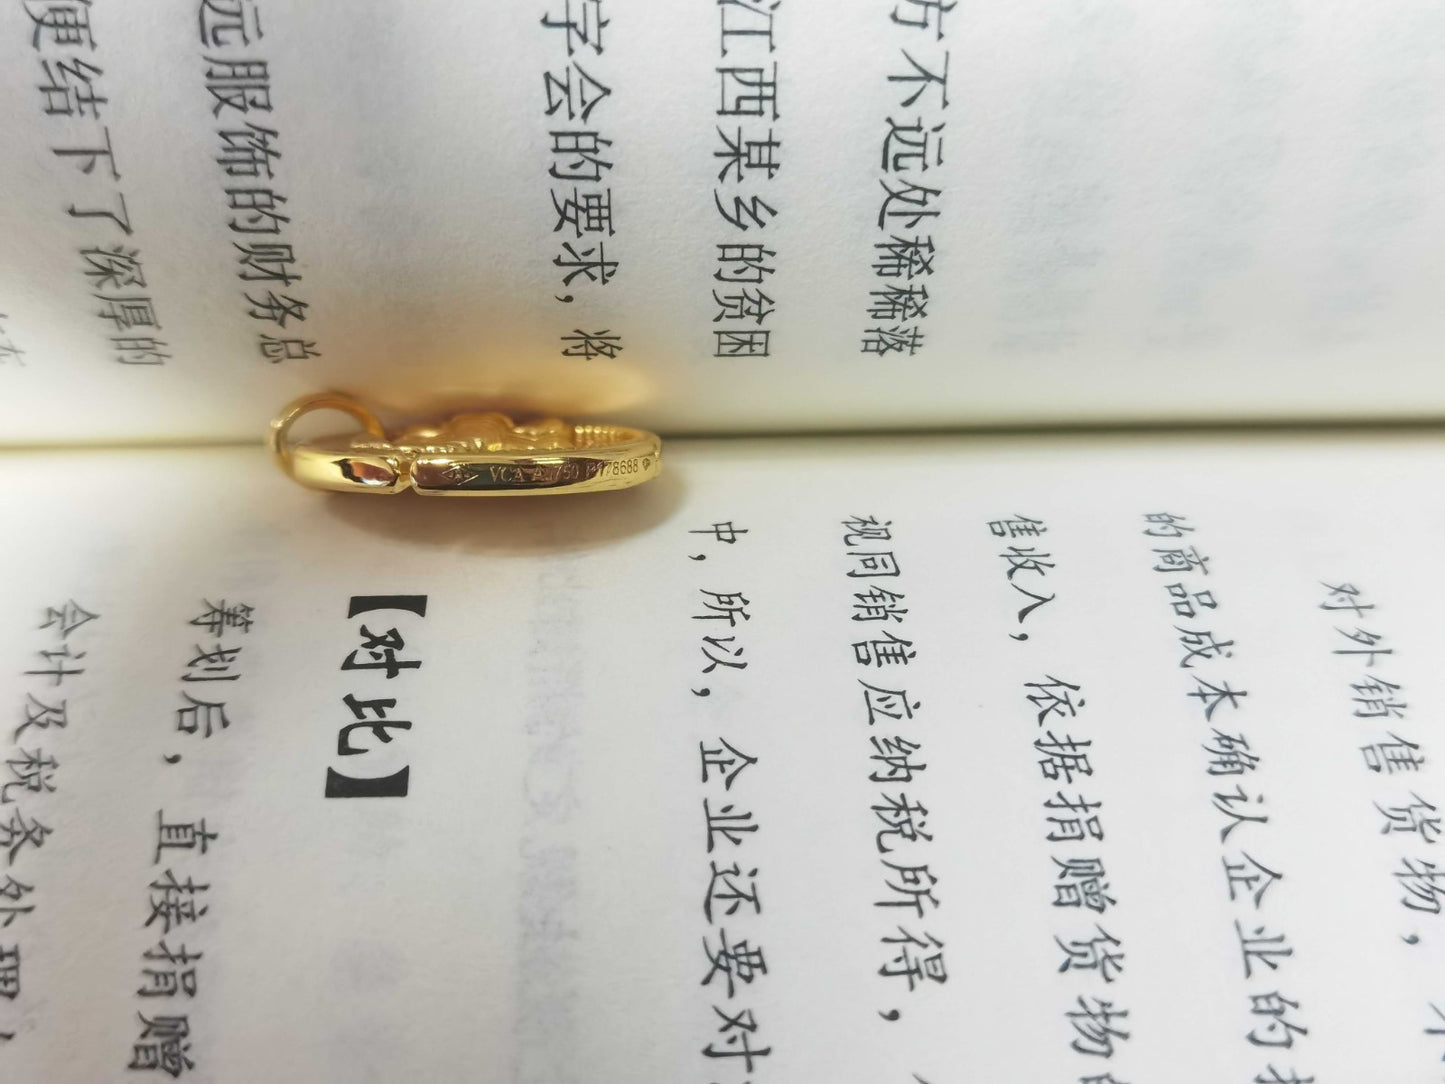 方不远处稀稀落
江西某乡的贫困
字会的要求，将
远服饰的财务总
便结下了深厚的
VCA Au750
对外销售货物，
的商品成本确认企业的
售收入，依据捐赠货物的
视同销售应纳税所得，
中，所以，企业还要对
【对比】
筹划后，直接捐赠
会计及税务处理